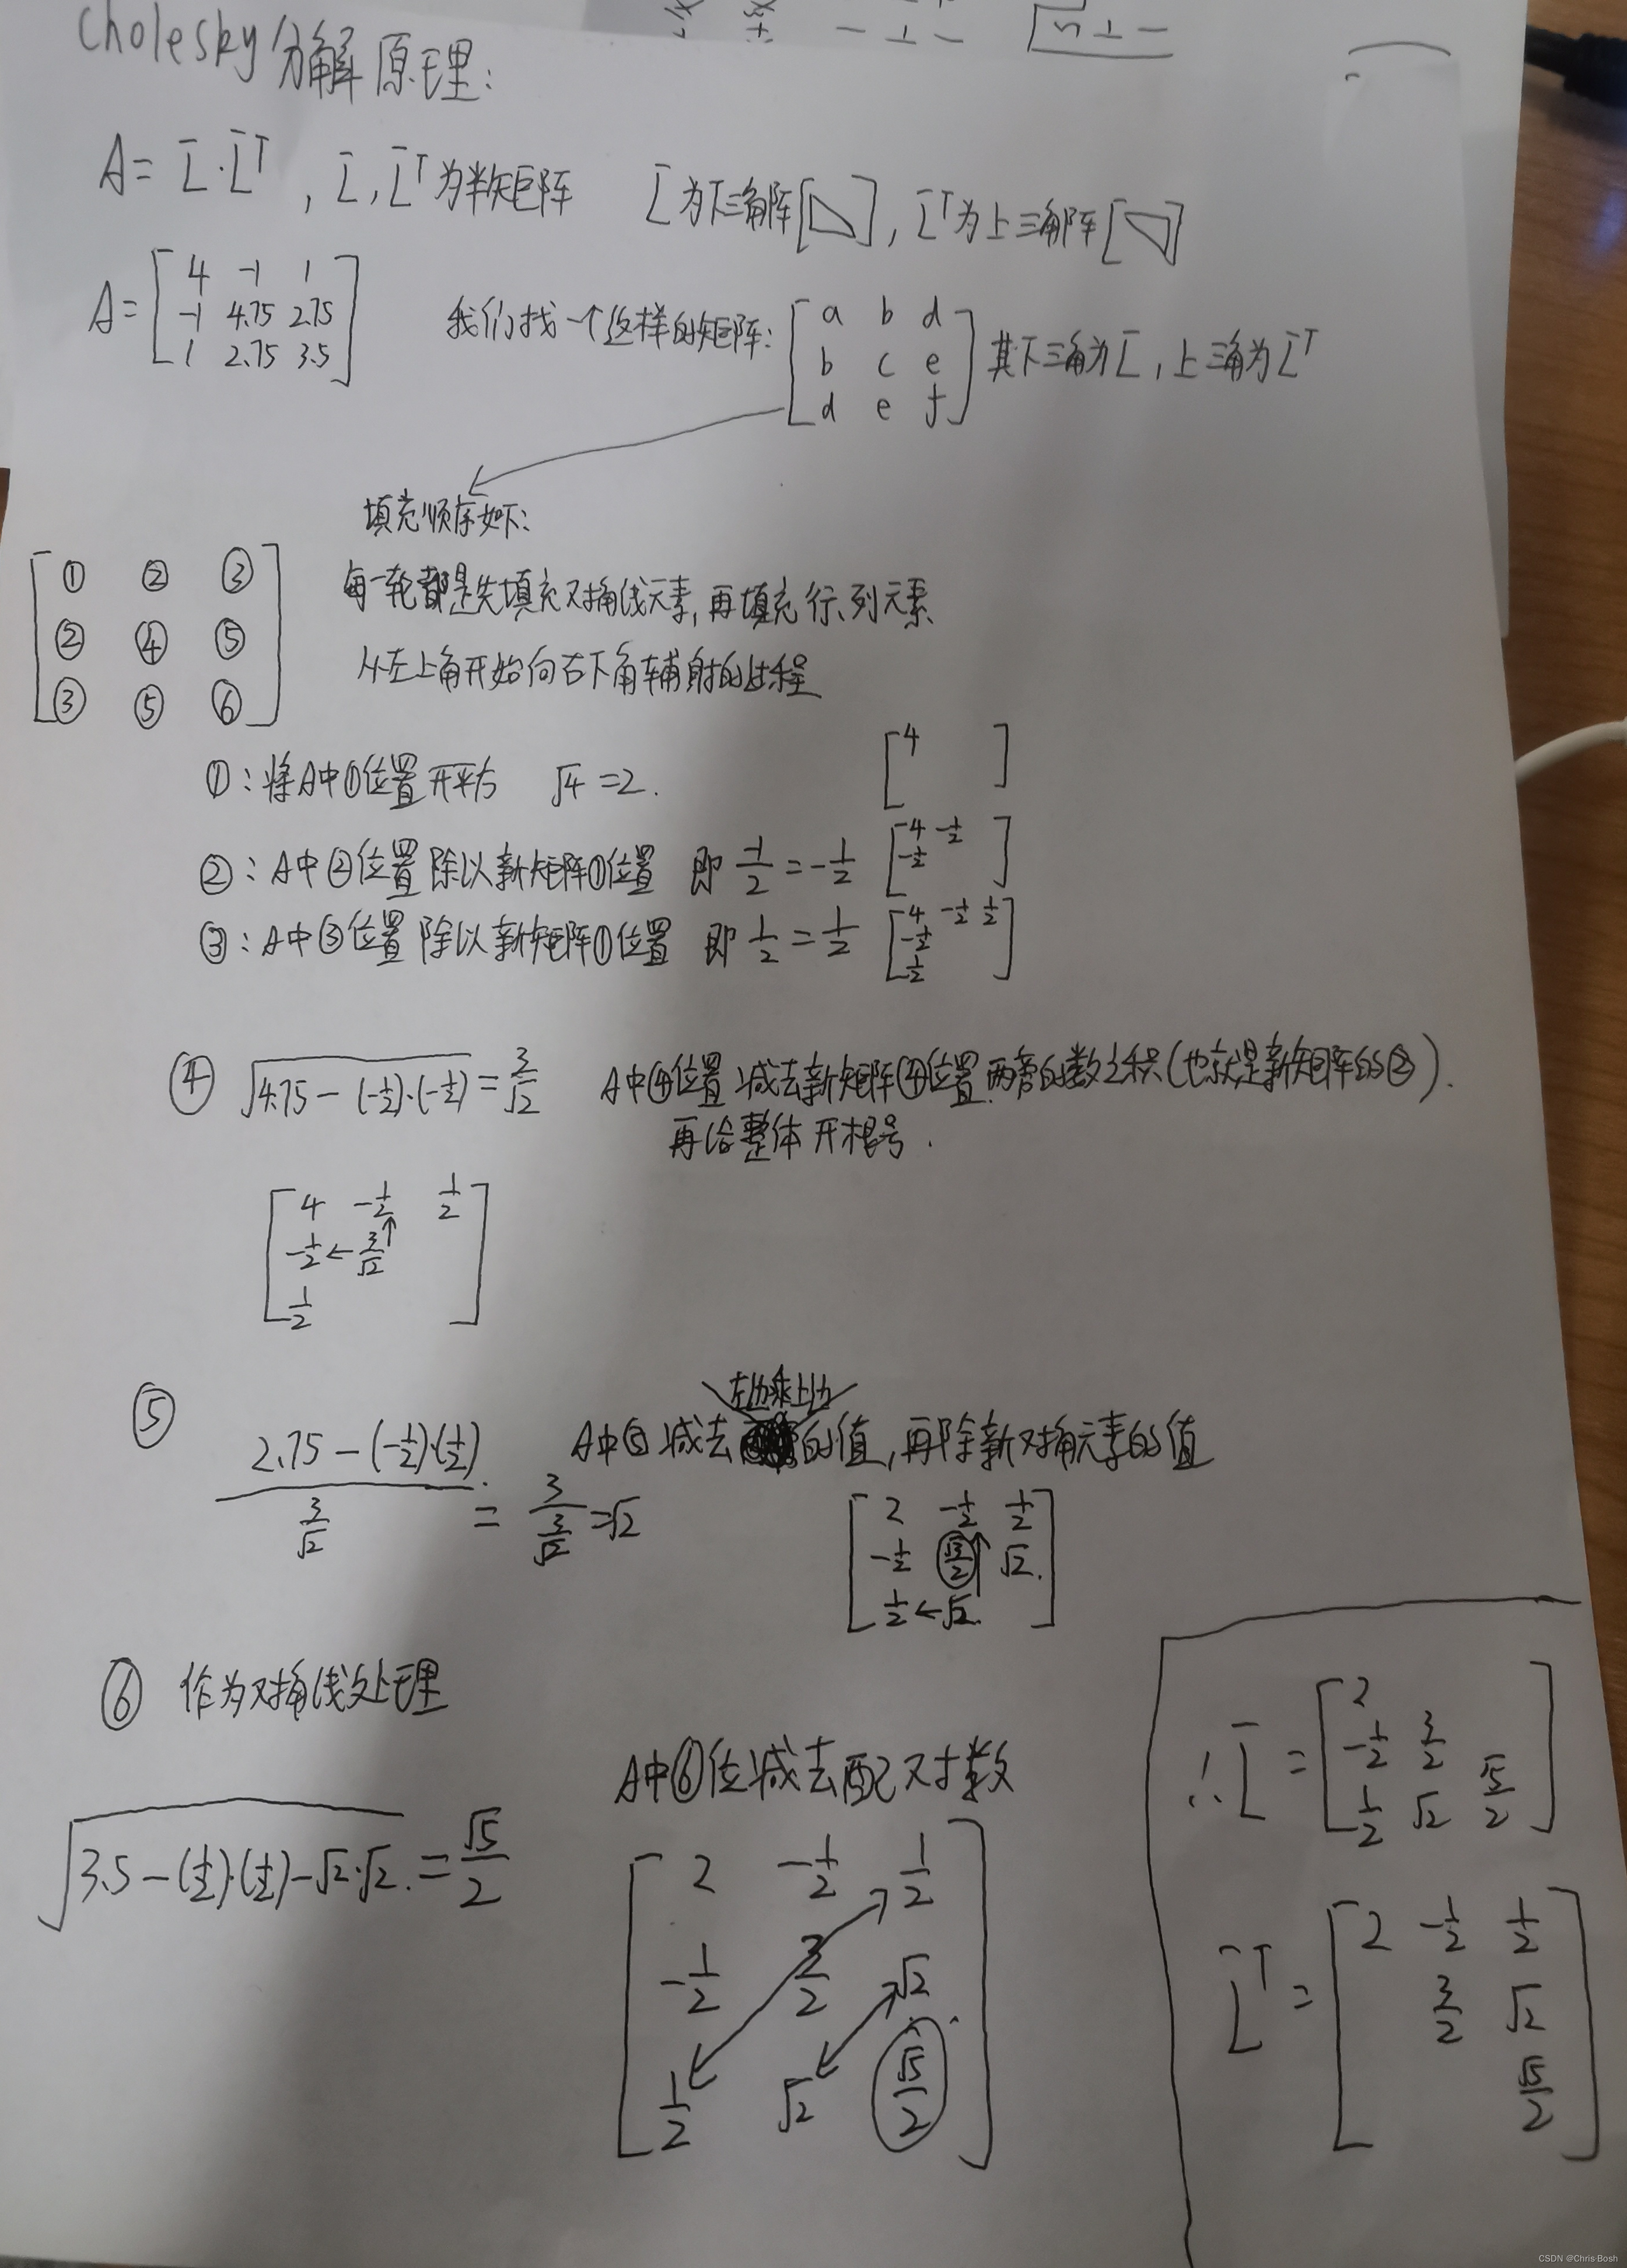 Cholesky分解原理:
A = L̄·L̄ᵀ , L̄, L̄ᵀ为半矩阵 L̄为下三角阵[◺], L̄ᵀ为上三角阵[◹]
A = [4 -1 1; -1 4.75 2.75; 1 2.75 3.5] 我们找一个这样的矩阵: [a b d; b c e; d e f] 其下三角为L̄, 上三角为L̄ᵀ
填充顺序如下:
[① ② ③; ② ④ ⑤; ③ ⑤ ⑥]
每一轮都是先填充对角线元素, 再填充行、列元素
从左上角开始向右下角辅射的过程
①: 将A中①位置开平方 √4 = 2. [4]
②: A中②位置除以新矩阵①位置 即 -1/2 = -1/2 [4 -1/2; -1/2]
③: A中③位置除以新矩阵①位置 即 1/2 = 1/2 [4 -1/2 1/2; -1/2; 1/2]
④ √(4.75 - (-1/2)·(-1/2)) = 3/√2 A中④位置减去新矩阵④位置两旁的数之积(也就是新矩阵的②).
再给整体开根号.
[4 -1/2 1/2; -1/2 ← 3/√2 ↑; 1/2]
左边乘上边
⑤ (2.75 - (-1/2)·(1/2)) / (3/√2) = 3 / (3/√2) = √2 A中⑤减去的值, 再除新对角元素的值
[2 -1/2 1/2; -1/2 √3/2 √2.; 1/2 ← √2.]
⑥ 作为对角线处理
A中⑥位减去配对数
√(3.5 - (1/2)·(1/2) - √2·√2.) = √5/2
[2 -1/2 1/2; -1/2 3/2 √2; 1/2 √2 √5/2]
∴ L̄ = [2; -1/2 3/2; 1/2 √2 √5/2]
L̄ᵀ = [2 -1/2 1/2; 3/2 √2; √5/2]
CSDN @Chris Bosh